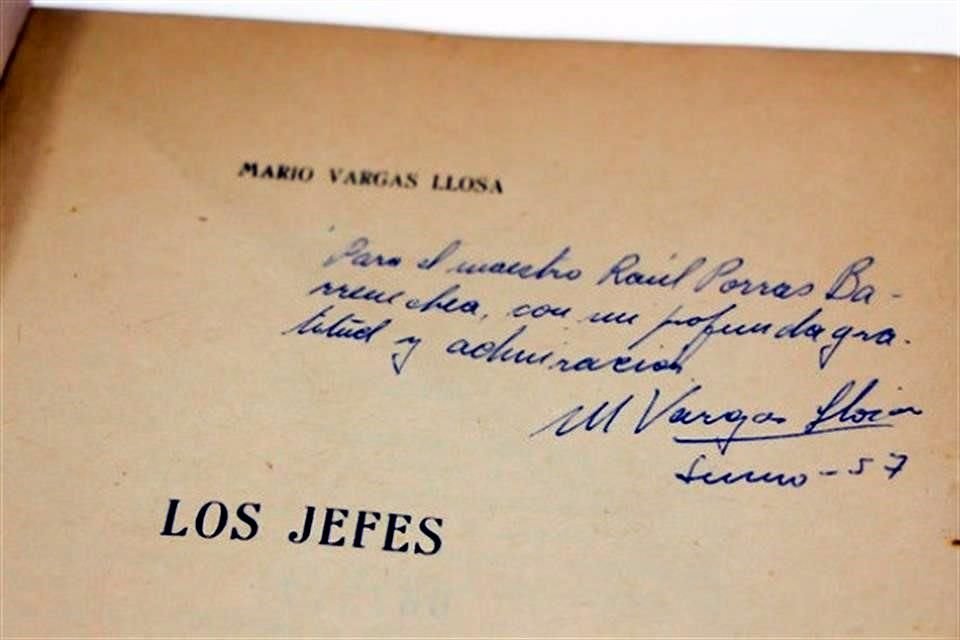 MARIO VARGAS LLOSA
Para el maestro Raúl Porras Ba-
rrenechea, con mi profunda gra-
titud y admiración
M Vargas Llosa
57
LOS JEFES